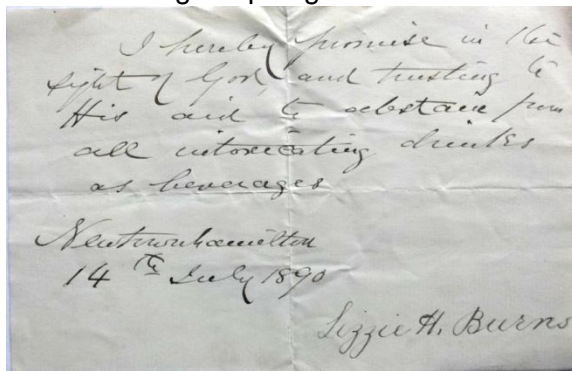 I hereby promise in the
sight of God, and trusting to
His aid to abstain from
all intoxicating drinks
as beverages
Newtownhamilton
14th July 1890
Lizzie H. Burns